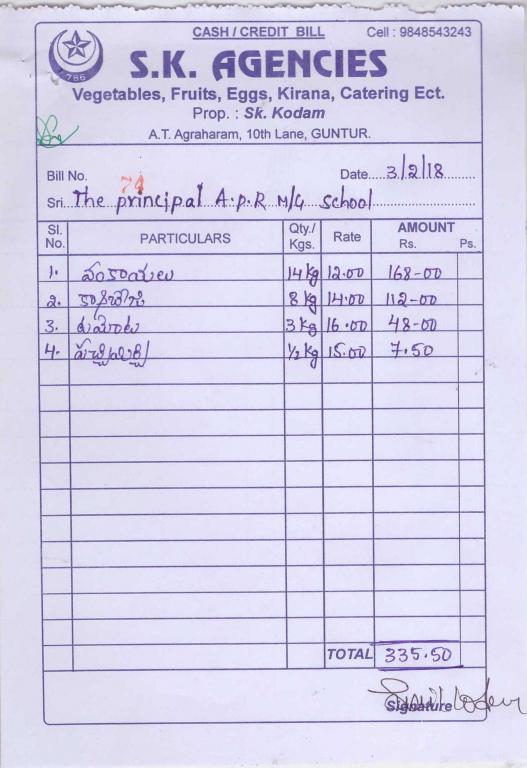 CASH / CREDIT BILL Cell : 9848543243
786
S.K. AGENCIES
Vegetables, Fruits, Eggs, Kirana, Catering Ect.
Prop. : Sk. Kodam
A.T. Agraharam, 10th Lane, GUNTUR.
Bill No. 74 Date 3/2/18
Sri. The principal A.P.R M/G School
Sl. No. PARTICULARS Qty./ Kgs. Rate AMOUNT Rs. Ps.
1. వంకాయలు 14 kg 12.00 168-00
2. క్యాబేజి 8 kg 14.00 112-00
3. టమోటా 3 kg 16.00 48-00
4. పచ్చిమిర్చి 1/2 kg 15.00 7.50
TOTAL 335.50
Signature